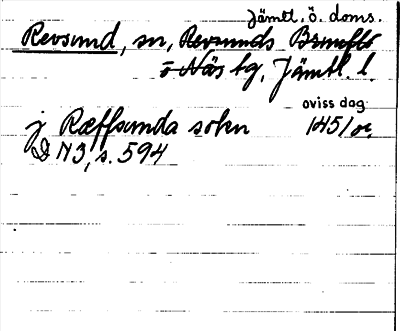 Jämtl. ö. doms.
Revsund, sn, Revsunds Brunflo
o Näs tg, Jämtl. l.
oviss dag
j Ræffsunda sokn 1451 or.
DN 3, s. 594